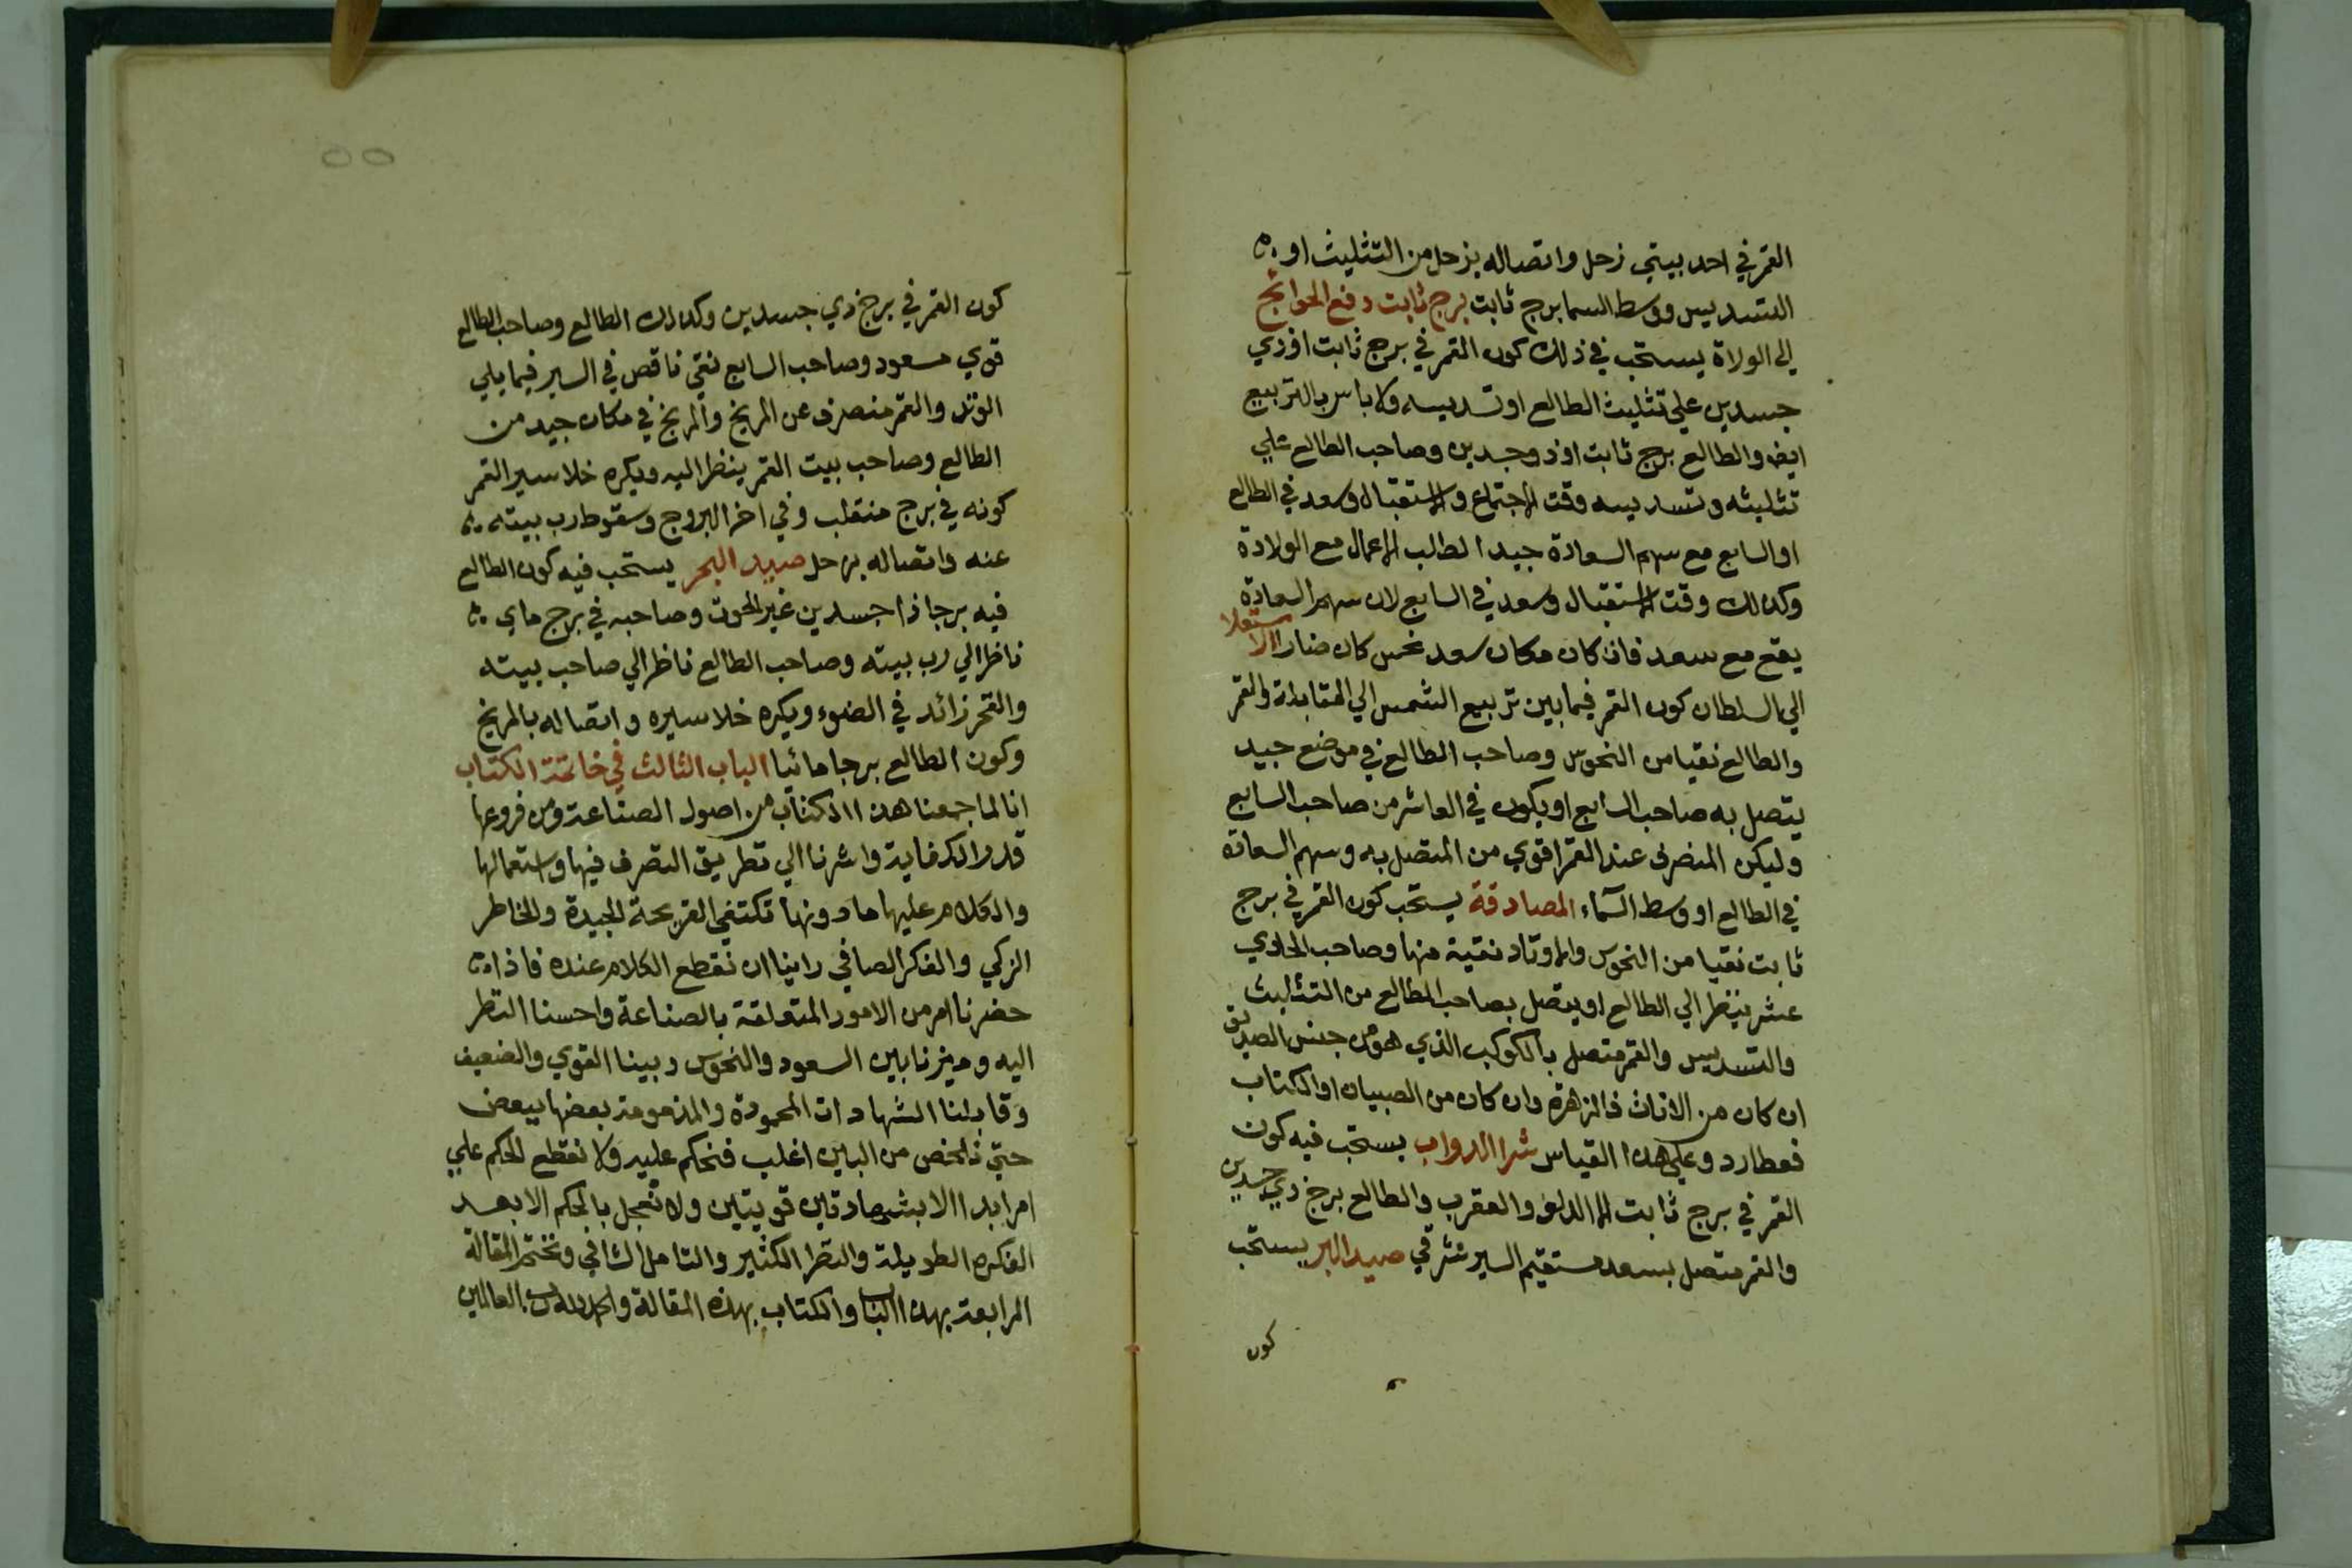 القمر في احد بيتي زحل واتصاله بزحل من التثليث او
التسديس ووسط السما برج ثابت برج ثابت دفع الحوائج
الى الولاة يستحب في ذلك كون القمر في برج ثابت اوذي
جسدين علي تثليث الطالع او تسديسه ولا باس بالتربيع
ايضا والطالع برج ثابت اوذو جسدين وصاحب الطالع علي
تثليثه وتسديسه وقت الاجتماع والاستقبال وسعد في الطالع
او السابع مع سهم السعادة جيد الطالب الاعمال مع الولادة
وكذلك وقت الاستقبال وسعد في السابع لان سهم السعادة
يقع مع سعد فان كان مكان سعد نحس كان ضارا الاستعلا
الي السلطان كون القمر فيما بين تربيع الشمس الي المقابلة والقمر
والطالع نقيا من النحوس وصاحب الطالع في موضع جيد
يتصل به صاحب السابع او يكون في العاشر من صاحب السابع
وليكن المنصرف عند القمر اقوي من المتصل به وسهم السعادة
في الطالع او وسط السماء المصادقة يستحب كون القمر في برج
ثابت نقيا من النحوس والاوتاد نقية منها وصاحب الحادي
عشر ينظر الي الطالع او يتصل بصاحب الطالع من التثليث
والتسديس والقمر متصل بالكوكب الذي هو من جنس الصديق
ان كان من الاناث فالزهرة وان كان من الصبيان او الكتاب
فعطارد وعلي هذا القياس شرا الدواب يستحب فيه كون
القمر في برج ثابت الا الدلو والعقرب والطالع برج ذي جسدين
والقمر متصل بسعد مستقيم السير شرقي صيد البر يستحب
كون
٥٥
كون القمر في برج ذي جسدين وكذلك الطالع وصاحب الطالع
قوي مسعود وصاحب السابع نقي ناقص في السير فيما يلي
الوتد والقمر منصرف عن المريخ والمريخ في مكان جيد من
الطالع وصاحب بيت القمر ينظر اليه ويكره خلا سير القمر
كونه في برج منقلب وفي اخر البروج وسقوط رب بيته
عنه واتصاله بزحل صيد البحر يستحب فيه كون الطالع
فيه برجا ذا جسدين غير الحوت وصاحبه في برج ماي
ناظر الي رب بيته وصاحب الطالع ناظر الي صاحب بيته
والقمر زائد في الضوء ويكره خلا سيره واتصاله بالمريخ
وكون الطالع برجا مائيا الباب الثالث في خاتمة الكتاب
انا لما جمعنا هذا الكتاب من اصول الصناعة ومن فروعها
قدر الكفاية واشرنا الي تطريق التصرف فيها واستعمالها
والكلام عليها ما دونها تكتفي القريحة الجيدة والخاطر
الزكي والفكر الصافي راينا ان نقطع الكلام عنده فاذا
حضرنا امر من الامور المتعلقة بالصناعة واحسنا النظر
اليه وميزنا بين السعود والنحوس وبينا القوي والضعيف
وقابلنا الشهادات المحمودة والمذمومة بعضها ببعض
حتي نلخص من البابين اغلب فنحكم عليه ولا نقطع الحكم علي
امر ابدا الا بشهادتين قويتين ولا نعجل بالحكم الا بعد
الفكره الطويلة والنظر الكثير والتامل الشافي ونختم المقالة
الرابعة بهذا الباب والكتاب بهذه المقالة والحمد لله رب العالمين